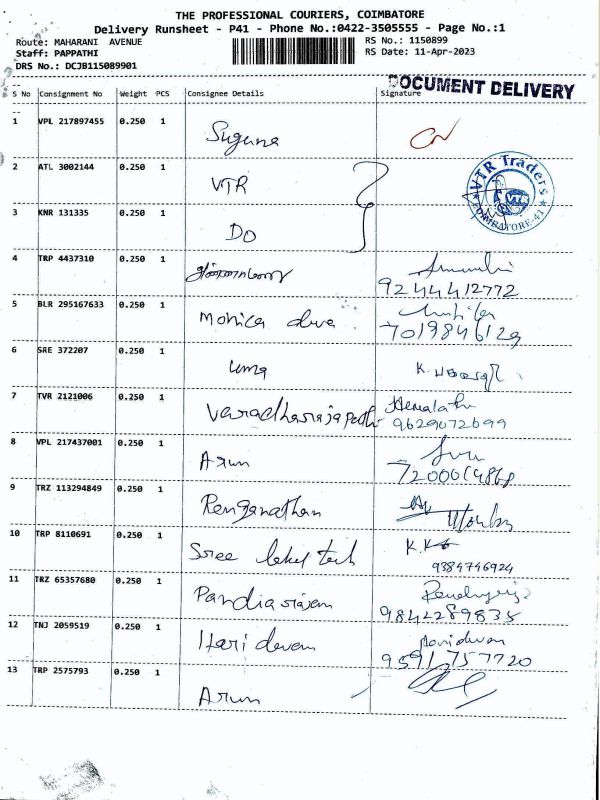 THE PROFESSIONAL COURIERS, COIMBATORE
Delivery Runsheet - P41 - Phone No.:0422-3505555 - Page No.:1
Route: MAHARANI AVENUE RS No.: 1150899
Staff: PAPPATHI RS Date: 11-Apr-2023
DRS No.: DCJB115089901
DOCUMENT DELIVERY
S No Consignment No Weight PCS Consignee Details Signature
1 VPL 217897455 0.250 1 Suguna
2 ATL 3002144 0.250 1 VTR
VTR Traders
VTR
COIMBATORE-41
3 KNR 131335 0.250 1 DO
4 TRP 4437310 0.250 1
9244412772
5 BLR 295167633 0.250 1 Monica deva
7019846129
6 SRE 372207 0.250 1 uma
7 TVR 2121006 0.250 1 Hemalatha
9629072699
8 VPL 217437001 0.250 1 Arun
9 TRZ 113294849 0.250 1 Renganathan
10 TRP 8110691 0.250 1 Sree
9384746924
11 TRZ 65357680 0.250 1
9842289835
12 TNJ 2059519 0.250 1 Hari devan
9591757720
13 TRP 2575793 0.250 1 Arun